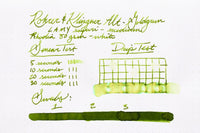 Rohrer & Klingner Alt-Goldgrün
LAMY safari - medium
Rhodia 80 gram - white
Smear Test
Drip Test
5 seconds
10 seconds
20 seconds
30 seconds
Swab:
1 2 3